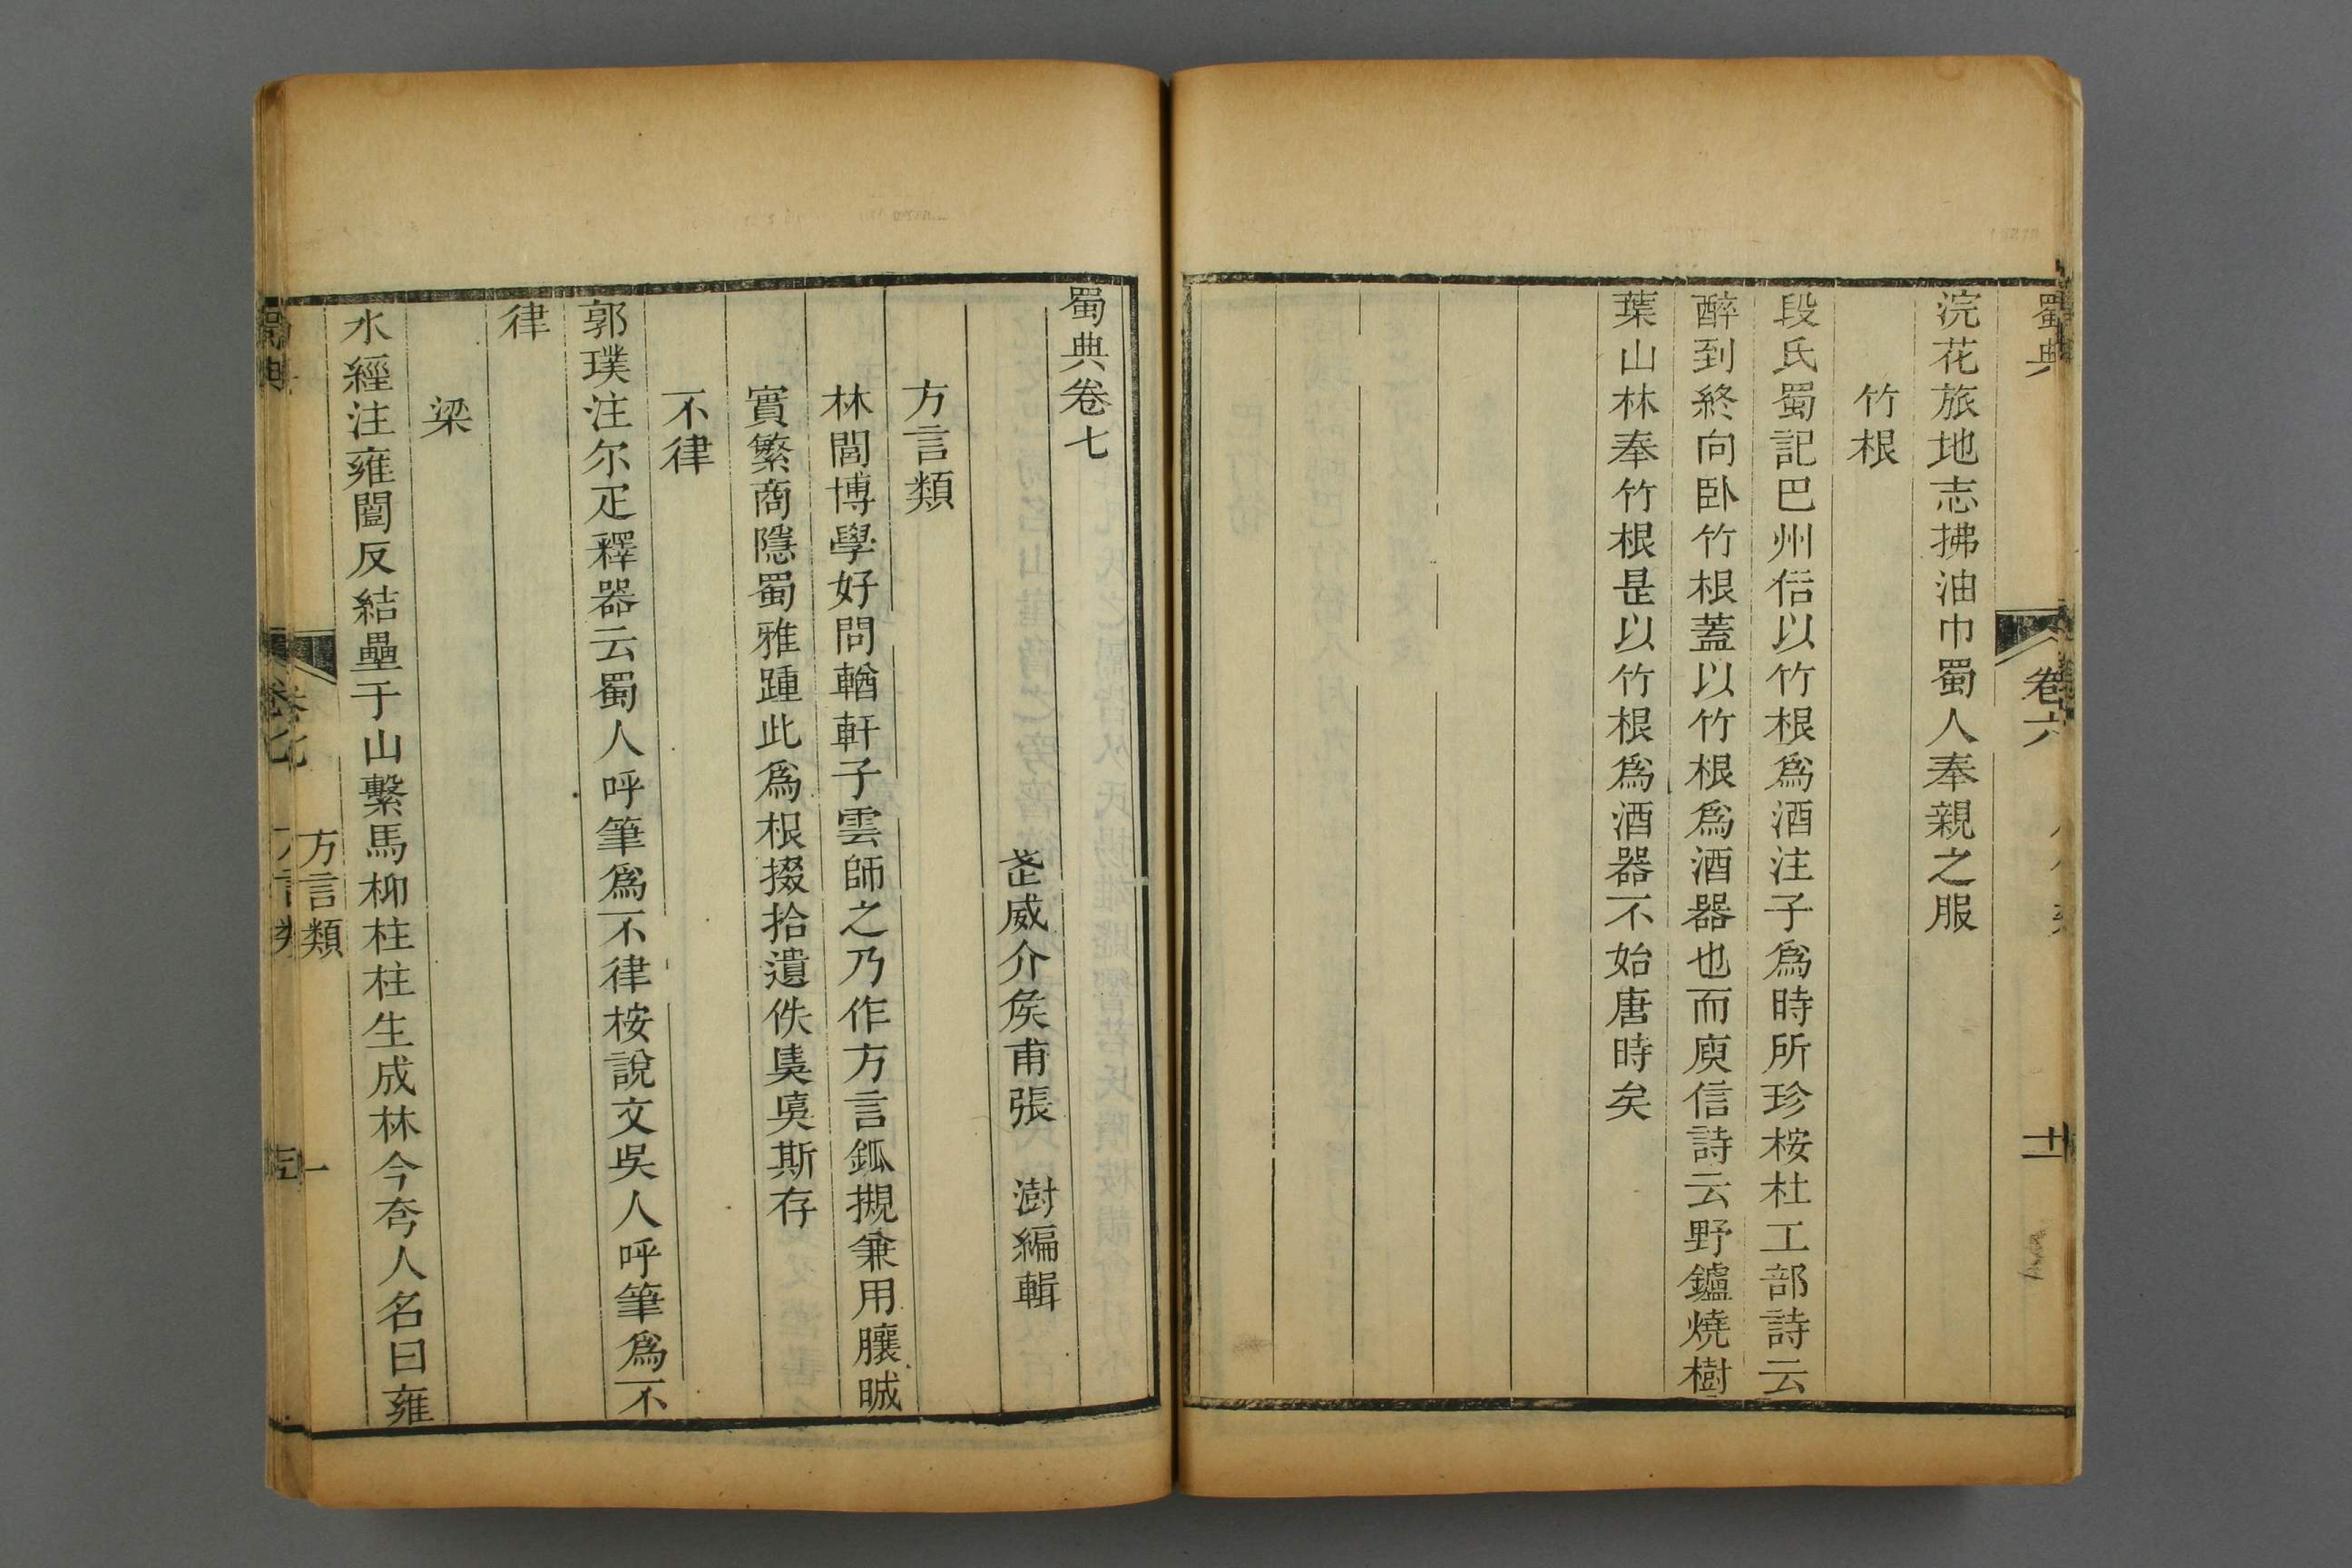 蜀典
卷六
十一
浣花旅地志拂油巾蜀人奉親之服
竹根
段氏蜀記巴州俗以竹根爲酒注子爲時所珍桉杜工部詩云
醉到終向卧竹根蓋以竹根爲酒器也而庾信詩云野鑪燒樹
葉山林奉竹根是以竹根爲酒器不始唐時矣
蜀典卷七
武威介矦甫張 澍編輯
方言類
林閭博學好問輶軒子雲師之乃作方言鈲摫兼用釀
實繁商隱蜀雅踵此爲根掇拾遺佚奊奊斯存
不律
郭璞注尔疋釋器云蜀人呼筆爲不律桉說文吳人呼筆爲不
律
梁
水經注雍闓反結壘于山繫馬枊柱柱生成林今夸人名曰雍
卷七
方言類
一